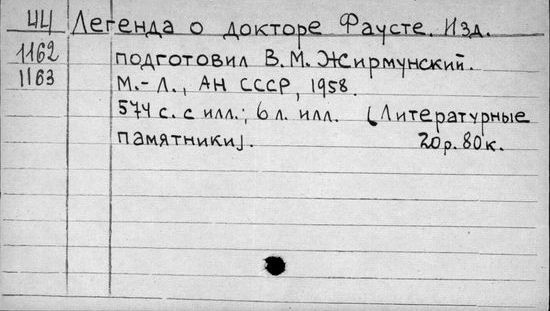 44 Легенда о докторе Фаусте. Изд.
1162 подготовил В.М. Жирмунский.
1163 М.-Л., АН СССР, 1958.
574 с. с илл.; 6 л. илл. [Литературные
памятники]. 20р. 80к.